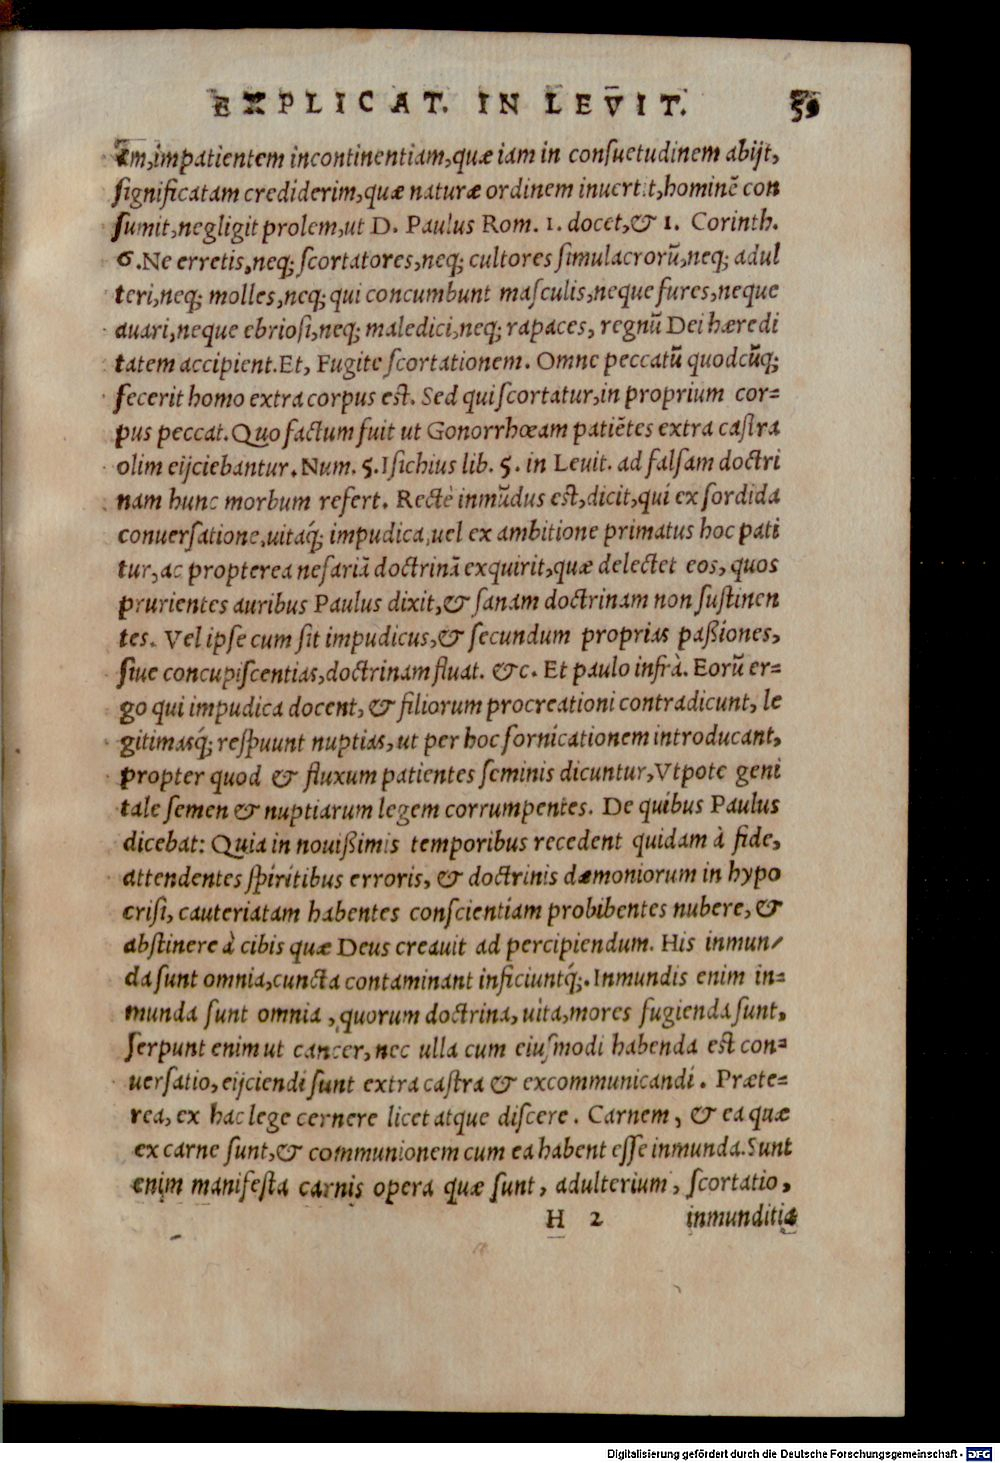 EXPLICAT. IN LEVIT. 59
em,impatientem incontinentiam,quæ iam in consuetudinem abijt,
significatam crediderim,quæ naturæ ordinem inuertit,hominē con
sumit,negligit prolem,ut D. Paulus Rom. 1. docet,& 1. Corinth.
6.Ne erretis,neq; scortatores,neq; cultores simulacrorū,neq; adul
teri,neq; molles,neq; qui concumbunt masculis,neque fures,neque
auari,neque ebriosi,neq; maledici,neq; rapaces, regnū Dei hæredi
tatem accipient.Et, Fugite scortationem. Omne peccatū quodcūq;
fecerit homo extra corpus est. Sed qui scortatur,in proprium cor=
pus peccat.Quo factum fuit ut Gonorrhœam patiētes extra castra
olim eijciebantur.Num. 5.Isichius lib. 5. in Leuit. ad falsam doctri
nam hunc morbum refert. Rectè inmūdus est,dicit,qui ex sordida
conuersatione,uitaq́; impudica,uel ex ambitione primatus hoc pati
tur,ac propterea nefariā doctrinā exquirit,quæ delectet eos, quos
prurientes auribus Paulus dixit,& sanam doctrinam non sustinen
tes. Vel ipse cum sit impudicus,& secundum proprias paßiones,
siue concupiscentias,doctrinam fluat. &c. Et paulo infrà. Eorū er=
go qui impudica docent, & filiorum procreationi contradicunt, le
gitimasq́; respuunt nuptias,ut per hoc fornicationem introducant,
propter quod & fluxum patientes seminis dicuntur,Vtpote geni
tale semen & nuptiarum legem corrumpentes. De quibus Paulus
dicebat: Quia in nouißimis temporibus recedent quidam à fide,
attendentes spiritibus erroris, & doctrinis dæmoniorum in hypo
crisi, cauteriatam habentes conscientiam probibentes nubere, &
abstinere à cibis quæ Deus creauit ad percipiendum. His inmun/
da sunt omnia,cuncta contaminant inficiuntq́;. Inmundis enim in=
munda sunt omnia ,quorum doctrina, uita,mores fugienda sunt,
serpunt enim ut cancer, nec ulla cum eiusmodi habenda est con=
uersatio, eijciendi sunt extra castra & excommunicandi. Præte=
rea, ex hac lege cernere licet atque discere. Carnem, & ea quæ
ex carne sunt,& communionem cum ea habent esse inmunda.Sunt
enim manifesta carnis opera quæ sunt, adulterium, scortatio,
H 2 inmunditia
Digitalisierung gefördert durch die Deutsche Forschungsgemeinschaft - DFG